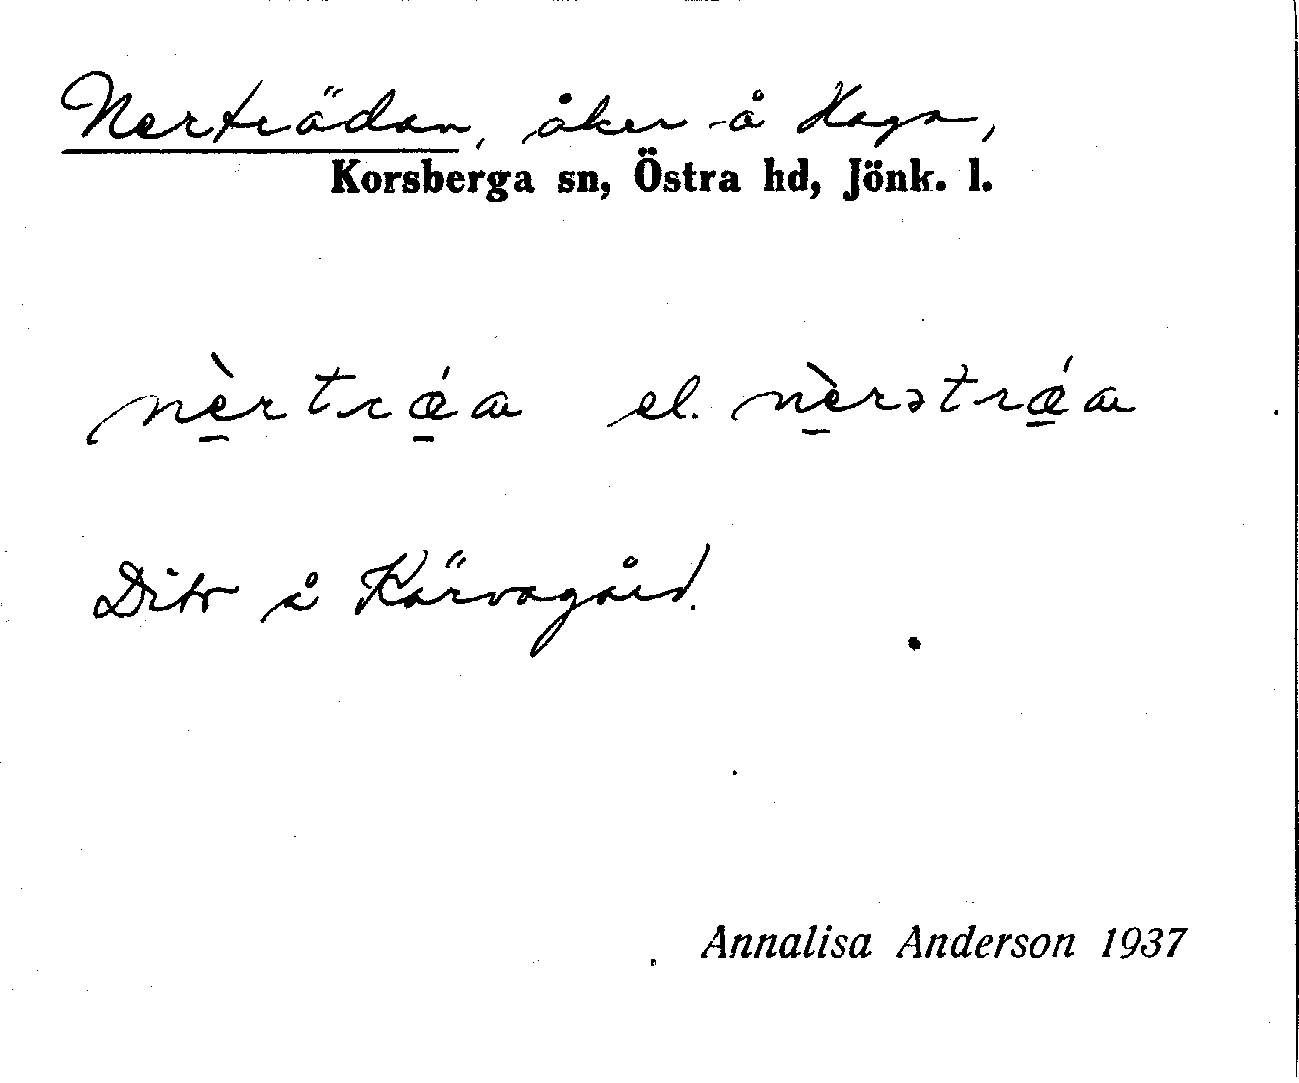 Nerträdan, åker å Haga,
Korsberga sn, Östra hd, Jönk. l.
nèrtrǽa el. nèrətrǽa
Dito å Kärvagård.
Annalisa Anderson 1937